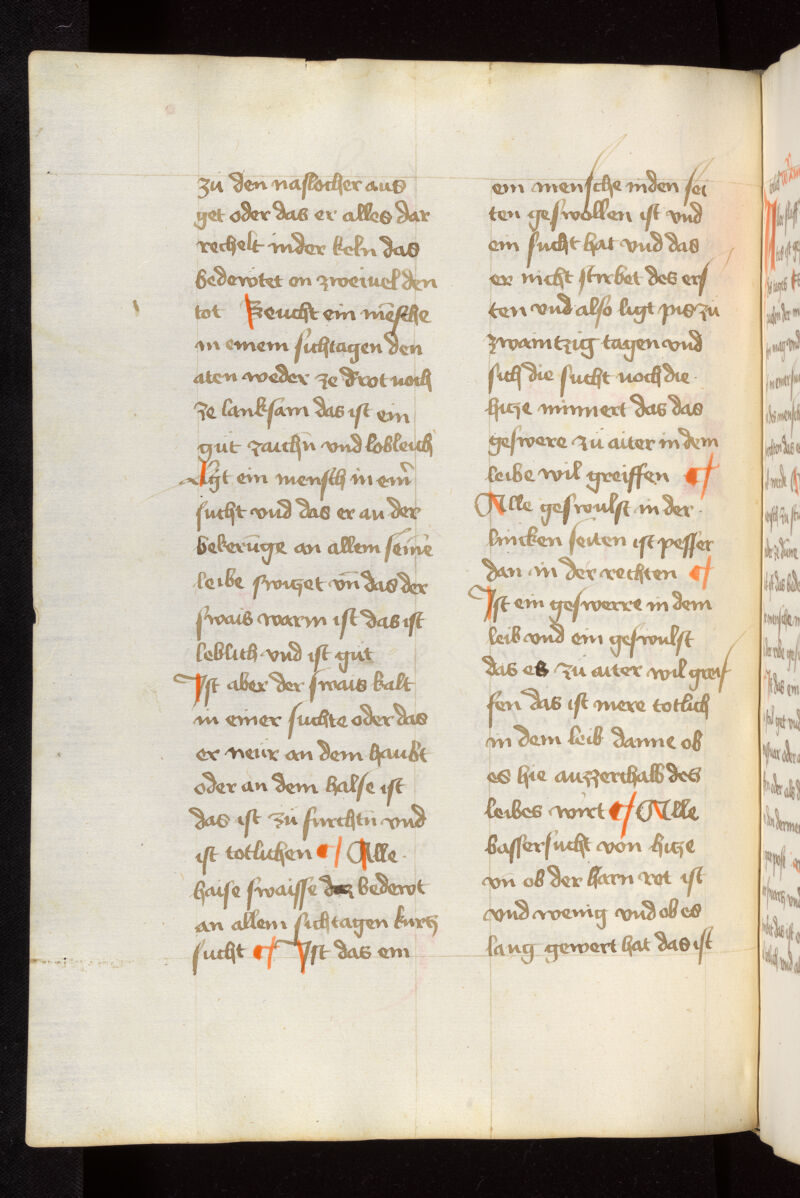 zu den naslocher aus
get oder das er alles dar
rechelt in der keln das
bedewtet on zweiuel den
tot Zeucht ein mēsche
in einem sichtagen den
aten weder ze drot noch
ze lanksam das ist ein
gut zaichn̄ vnd lobleich
Ligt ein mensch in eīm
sucht vnd das er an der
bekerūge an allem seinē
leibe switzet vn̄ das der
swais warm ist das ist
leblich vnd ist gut
Ist aber der swais kalt
in einer suchte oder das
er neur an dem haubt
oder an dem halse ist
das ist zu furchtn̄ vnd
ist totlichen ¶ Alle
haise swaisse bedewt
an allem sichtagen kurtz
sucht ¶ Ist das ein
ein mensche in den sei
ten geswollen ist vnd
ein sucht hat vnd das
er nicht stirbet des ers
ten vnd also ligt pis zu
zwaintzig tagen vnd
sich die sucht noch die
hitze minnert das das
geswere zu aiter in dem
leibe wil greiffen ¶
Alle geswulst in der
lincken seiten ist pesser
dan in der rechten ¶
Ist ein geswerre in dem
leib vnd ein geswulst
das es zu aiter wil greif
fen das ist mere totlich
in dem leib danne ob
es hie auzzerthalb des
leibes wirt ¶ Alle
bassersucht von hitze
vn ob der harn rot ist
vnd wenig vnd ob es
lang gewert hat das ist